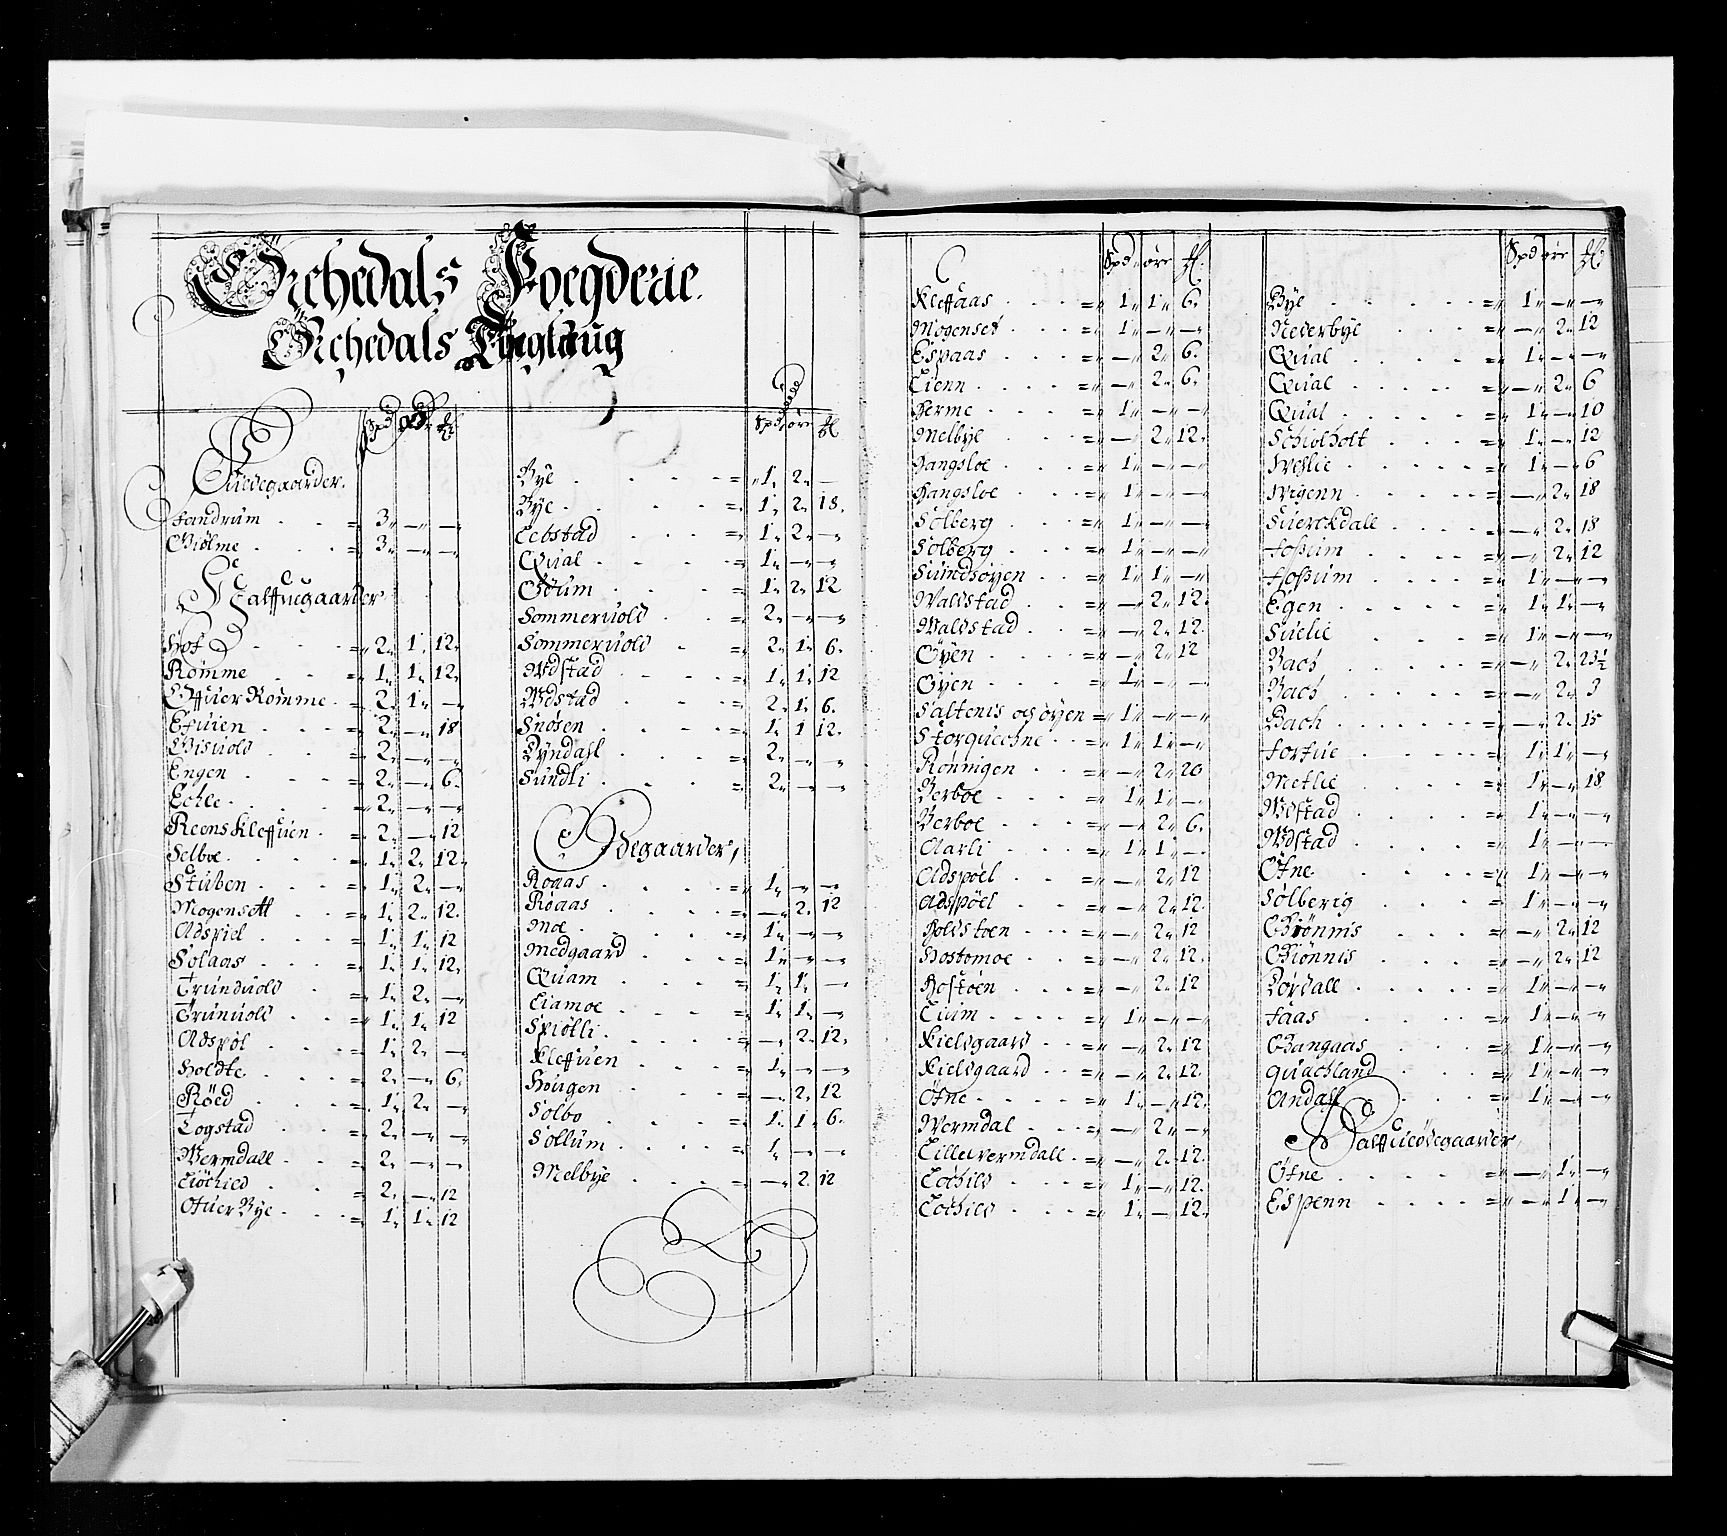 Orchedals Foegderie.
Orchedals Tinglaug
Spd øre ₰
Fuldegaarder.
Fandrum - - = 3 „ — „ — „
Giølme - - = 3 „ — „ — „
Halffuegaarder
Hof - - = 2 „ 1 „ 12 „
Romme - - = 1 „ 1 „ 12 „
Offuer Romme - = 2 „ 1 „ — „
Efuien - - = 2 „ — „ 18
Gisuold - - = 2 „ — „ — „
Engen - - = 2 „ — „ 6 „
Echle - - = 2 „ — „ — „
Reens Kleffuen - = 2 „ — „ 12
Selboe - - = 1 „ 2 „ 12 „
Stuben - - = 1 „ 2 „ — „
Mogensett - - = 1 „ 2 „ 12
Adspiel - - = 1 „ 1 „ 12
Solaas - - = 1 „ 1 „ 12 „
Trunduold - = 1 „ 2 „ — „
Trunuold - - = 1 „ 1 „ 12
Adspøl - - = 1 „ 2 „ — „
Holdte - - = 2 „ — „ 6 „
Röed - - = 1 „ 2 „ — „
Togstad - - = 2 „ — „ — „
Wermdall - - = 2 „ — „ — „
Liøchild - - = 2 „ — „ 12
Ofuer Bye - - = 1 „ 1 „ 12
Spd øre ₰
Bye - - = 1 „ 2 „ —
Bye - - = 1 „ 2 „ 18 „
Eebstad - - = 1 „ 2 „ — „
Qual - - = 1 „ — „ — „
Gøium - - = 1 „ 2 „ 12
Sommeruold - - = 2 „ — „ — „
Sommeruold - = 2 „ 1 „ 6 „
Wdstad - - = 1 „ 1 „ 12
Wdstad - - = 2 „ 1 „ 6 „
Snøsen - - = 1 „ 1 12 „
Dyndall - - = 2 „ — „ — „
Sundli - - = 2 „ — „ — „
Ødegaarder,
Roaas - - = 1 „ — „ — „
Roaas - - = — „ 2 „ 12
Moe - - = 1 „ — „ — „
Medgaard - - = 1 „ — „ — „
Quam - - = 1 „ 1 „ — „
Liamoe - - = 1 „ 1 „ — „
Spiøtli - - = — „ 2 „ 12 „
Kleffuen - - = 1 „ — „ — „
Hougen - - = — „ 2 „ 12
Solbo - - = 1 „ 1 „ 6 „
Sollum - - = 1 „ — „ — „
Melbye - - = — „ 2 „ 12
Spd „ øre ₰
Kleffaas - - = „ 1 „ 1 „ 6 „
Mogenset - - = „ 1 „ — „ — „
Espaas - - = „ — „ 2 „ 6 „
Lienn - - = „ — „ 2 „ 6 „
Herme - - = „ 1 „ — „ — „
Melbye - - = „ — „ 2 „ 12 „
Hangsloe - - = „ 1 „ — „ — „
Hangsloe - - = „ 1 „ — „ — „
Sølberg - - = „ 1 „ — „ — „
Sølberg - - = „ 1 „ — „ — „
Sundsøyen - - = „ 1 „ 1 „ — „
Waldstad - - = „ — „ 2 „ 12 „
Waldstad - - = „ — „ 2 „ 12 „
Øyen - - = „ — „ 2 „ 12
Øyen - - = „ 1 „ — „ — „
Saltenis og øyen = „ 1 „ — „ — „
Storquechne - - = „ 1 „ 1 „ — „
Ronnigen - - = „ — „ 2 „ 20
Berboe - - = „ 1 „ 1 „ — „
Berboe - - = „ — „ 2 „ 6 „
Aarli - - = „ 1 „ 1 „ — „
Adspøel - - = „ — „ 2 „ 12
Adspøel - - = „ — „ 2 „ 12 „
Holdstoen - - = „ — „ 2 „ 12
Hostomoe - - = „ — „ 2 „ 12 „
Hostøen - - = „ — „ 2 „ 12
Lium - - = „ 1 „ — „ — „
Kielsgaard - - = „ — „ 2 „ 12
Kielsgaard - - = „ — „ 2 „ 12 „
Øfne - - = „ 1 „ — „ 12 „
Wermdal - - = „ — „ 2 „ — „
Lille wermdall - = „ — „ 2 „ 12 „
Lochild - - = „ 1 „ — „ 12 „
Lochild - - = „ 1 „ — „ 12 „
Spd øre ₰
Bye - - = „ 1 „ — „ — „
Nederbye - - = „ — „ 2 „ 12
Qual - - = „ 1 „ — „ — „
Qual - - = „ — „ 2 „ 6
Qual - - = „ 1 „ — „ 10
Schiølholt - - = „ 1 „ — „ 12
Weslie - - = „ 1 „ — „ 6
Wigenn - - = „ — „ 2 „ 18
Suerckdall - - = „ — „ 2 „ 18
Fossum - - = „ — „ 2 „ 12
Fossum - - = „ 1 „ — „ — „
Egen - - = „ 1 „ 1 „ — „
Suelie - - = „ 1 „ — „ — „
Bach - - = „ — „ 2 „ 23½
Bach - - = „ — „ 2 „ 3
Bach - - = „ — „ 2 „ 15
Forfue - - = „ 1 „ 1 „ — „
Metlie - - = „ 1 „ — „ 18
Wdstad - - = „ 1 „ — „ — „
Wdstad - - = „ 1 „ — „ — „
Øfne - - = „ 1 „ — „ — „
Sølberig - - = „ 1 „ — „ — „
Grønnis - - = „ — „ 2 „ 12
Giønnis - - = „ — „ 2 „ 12
Dørdall - - = „ 1 „ — „ — „
Faas - - = „ 1 „ — „ — „
Gangaas - - = „ 1 „ — „ — „
Quachland - - = „ 1 „ — „ — „
Andall - - = „ 1 „ — „ — „
Halffueødegaarder,
Øfne - - = „ — „ 1 „ — „
Espenn - - = „ — „ 1 „ — „